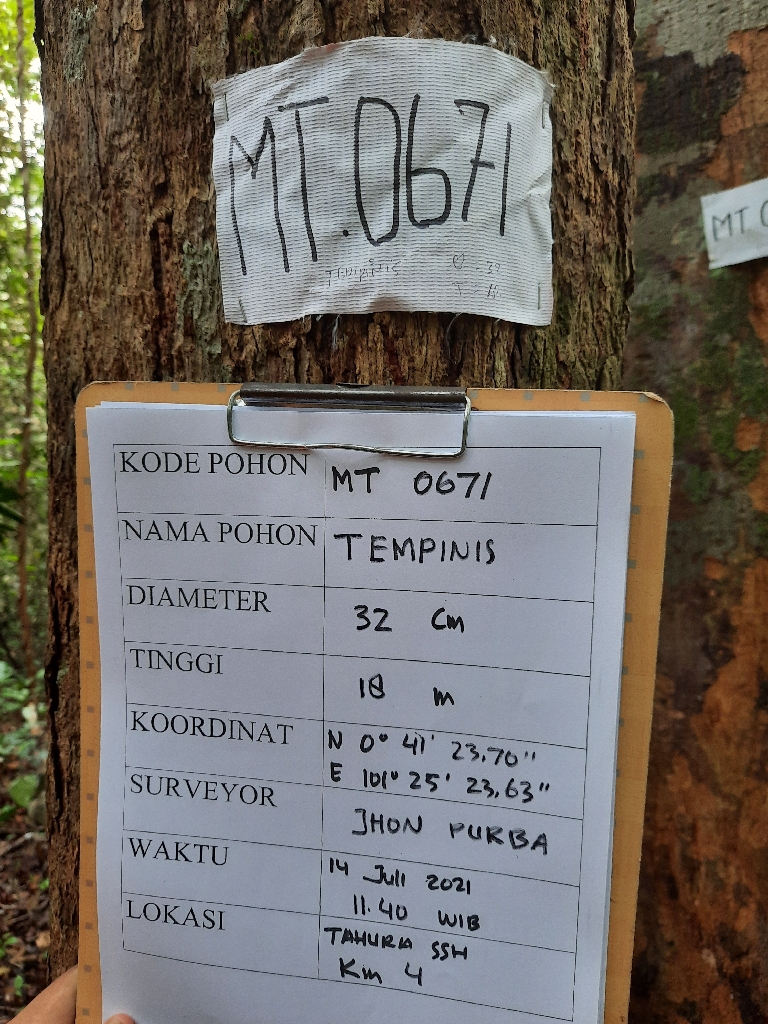 MT.0671
MT
KODE POHON MT 0671
NAMA POHON TEMPINIS
DIAMETER 32 Cm
TINGGI 18 m
KOORDINAT N 0° 41' 23.70"
E 101° 25' 23.63"
SURVEYOR JHON PURBA
WAKTU 14 Juli 2021
11.40 WIB
LOKASI TAHURA SSH
Km 4